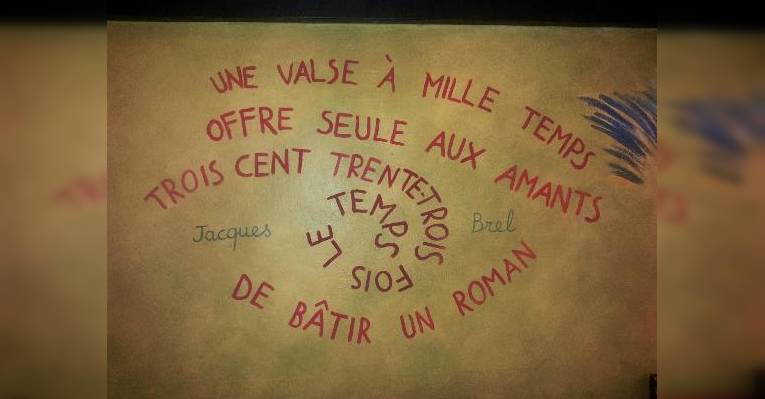 UNE VALSE À MILLE TEMPS
OFFRE SEULE AUX AMANTS
TROIS CENT TRENTE-TROIS
FOIS
LE TEMPS
DE BÂTIR UN ROMAN
Jacques Brel